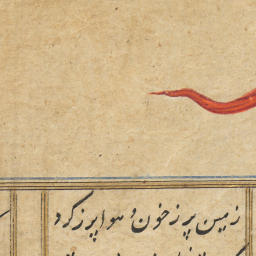 زمین پر ز خون و هوا پر ز گرد